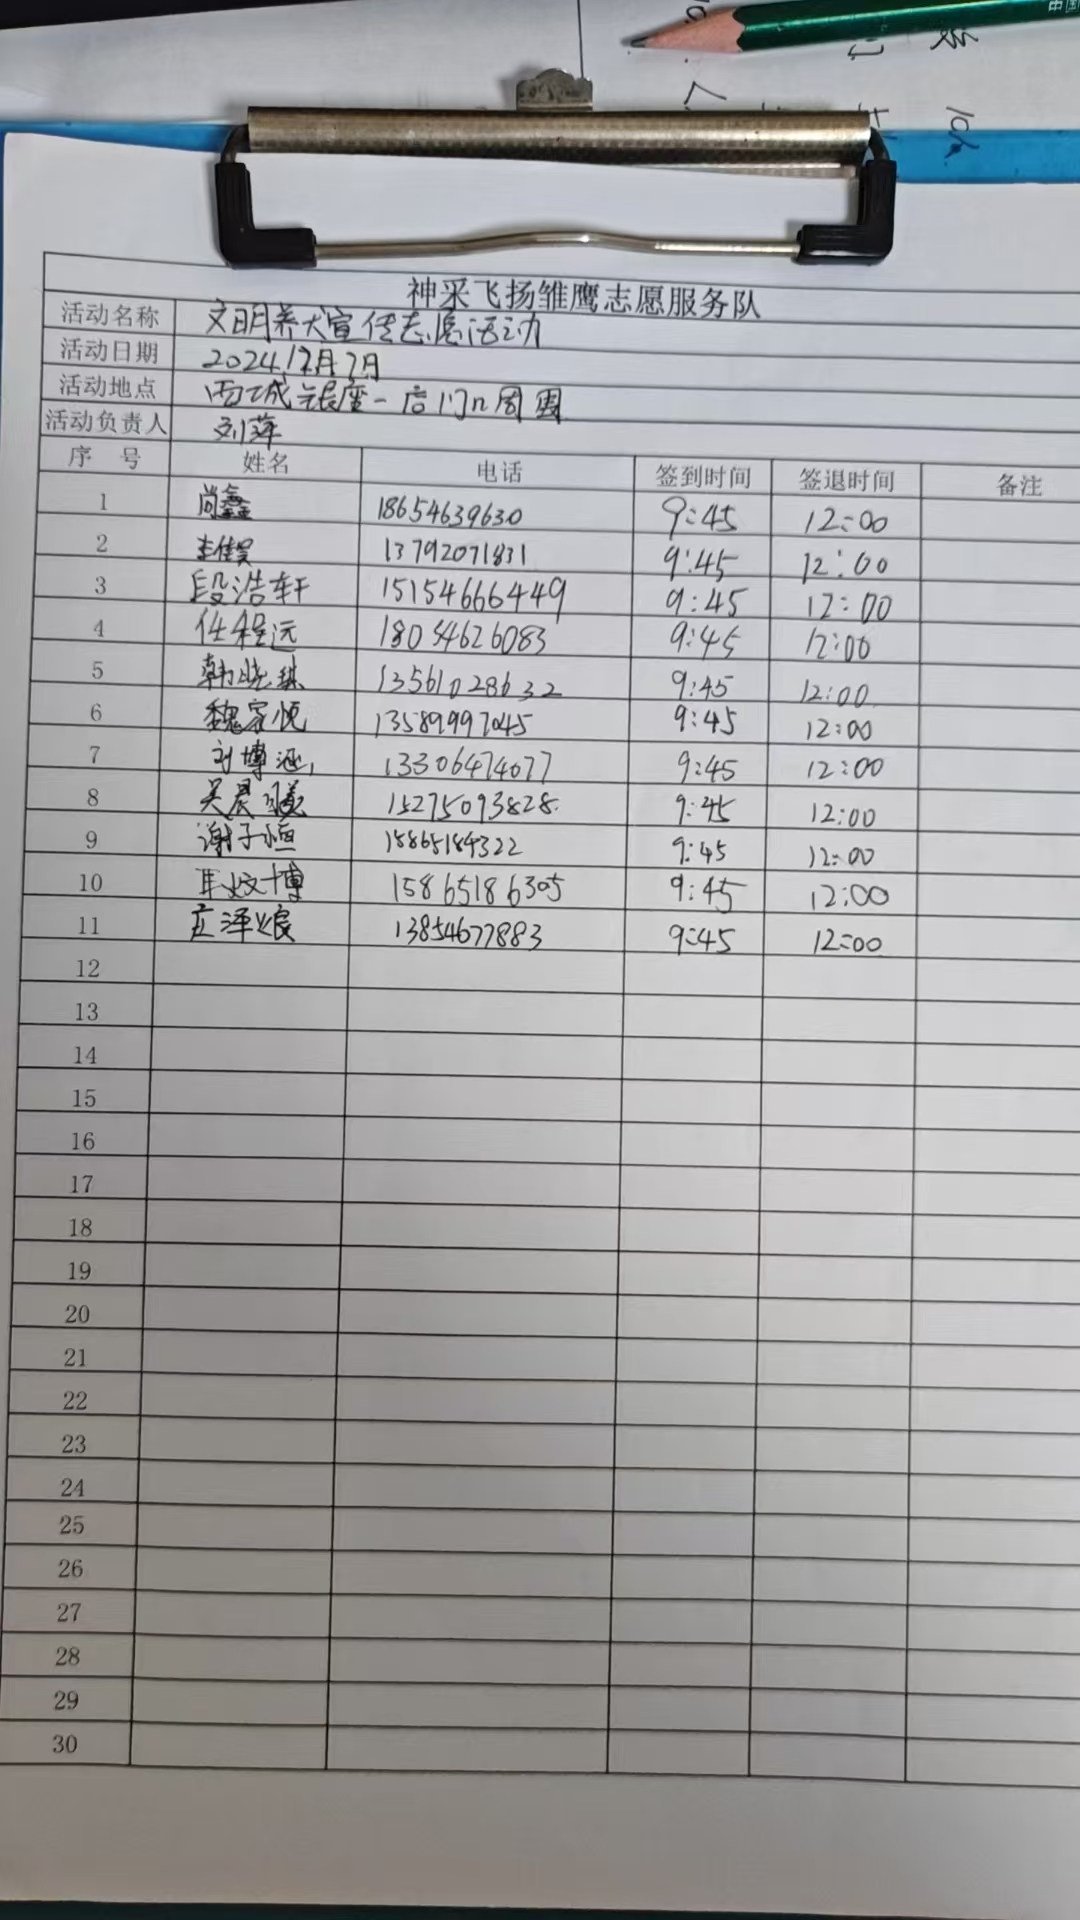 中国
神采飞扬雏鹰志愿服务队
活动名称 文明养犬宣传志愿活动
活动日期 2024.12月7日
活动地点 西城银座一店门口周围
活动负责人 刘萍
序 号 姓名 电话 签到时间 签退时间 备注
1 尚鑫 18654639630 9:45 12:00
2 13792071831 9:45 12:00
3 段浩轩 15154666449 9:45 12:00
4 任程远 18054626083 9:45 12:00
5 韩晓琪 13561028632 9:45 12:00
6 魏家悦 13589997045 9:45 12:00
7 刘博涵 13306474077 9:45 12:00
8 吴晨曦 15275093828 9:45 12:00
9 谢子恒 15865184322 9:45 12:00
10 15865186305 9:45 12:00
11 庄泽烺 13854677883 9:45 12:00
12
13
14
15
16
17
18
19
20
21
22
23
24
25
26
27
28
29
30